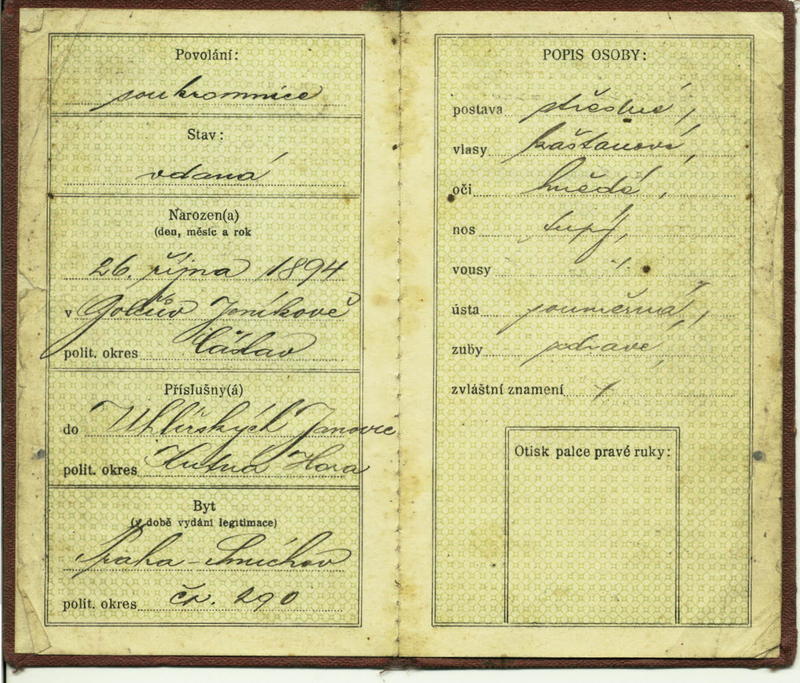 Povolání:
soukromnice
Stav:
vdaná
Narozen(a)
(den, měsíc a rok
26. října 1894
v Golčův Jeníkově
polit. okres Čáslav
Příslušný(á)
do Uhlířských Janovic
polit. okres Kutná Hora
Byt
(v době vydání legitimace)
Praha-Smíchov
polit. okres čp. 290
POPIS OSOBY:
postava střední,
vlasy kaštanové,
oči hnědé,
nos tupý,
vousy -/.
ústa souměrná,
zuby zdravé,
zvláštní znamení
Otisk palce pravé ruky: